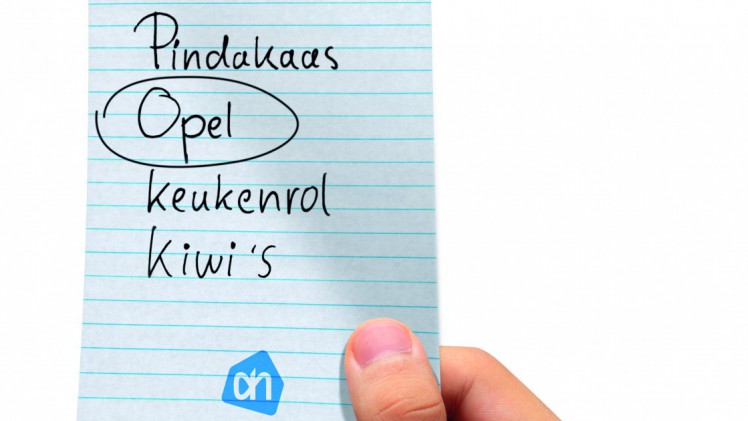 Pindakaas
Opel
keukenrol
Kiwi's
ah